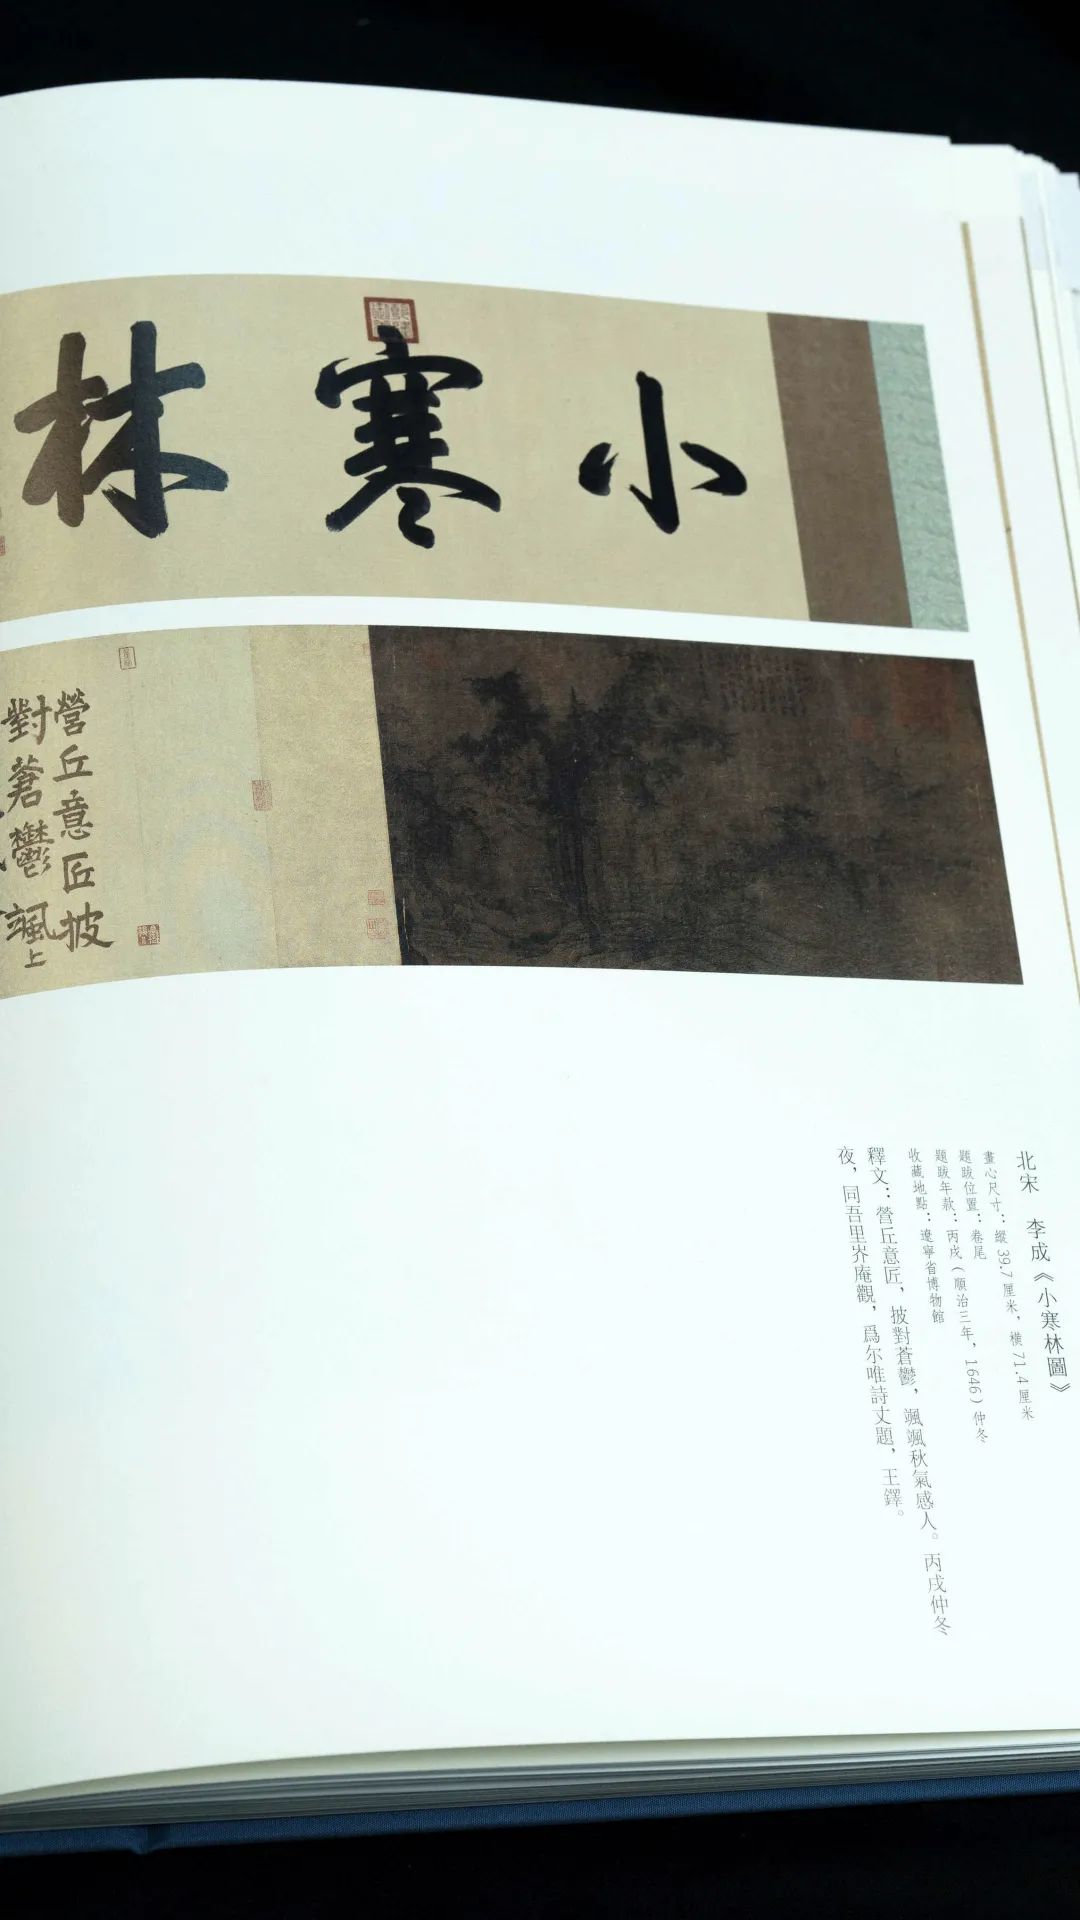 小寒林
營丘意匠披
對蒼鬱颯上
北宋　李成《小寒林圖》
畫心尺寸：縱 39.7 厘米，橫 71.4 厘米
題跋位置：卷尾
題跋年款：丙戌（順治三年，1646）仲冬
收藏地點：遼寧省博物館
釋文：營丘意匠，披對蒼鬱，颯颯秋氣感人。丙戌仲冬
夜，同吾里岕庵觀，爲尔唯詩丈題，王鐸。